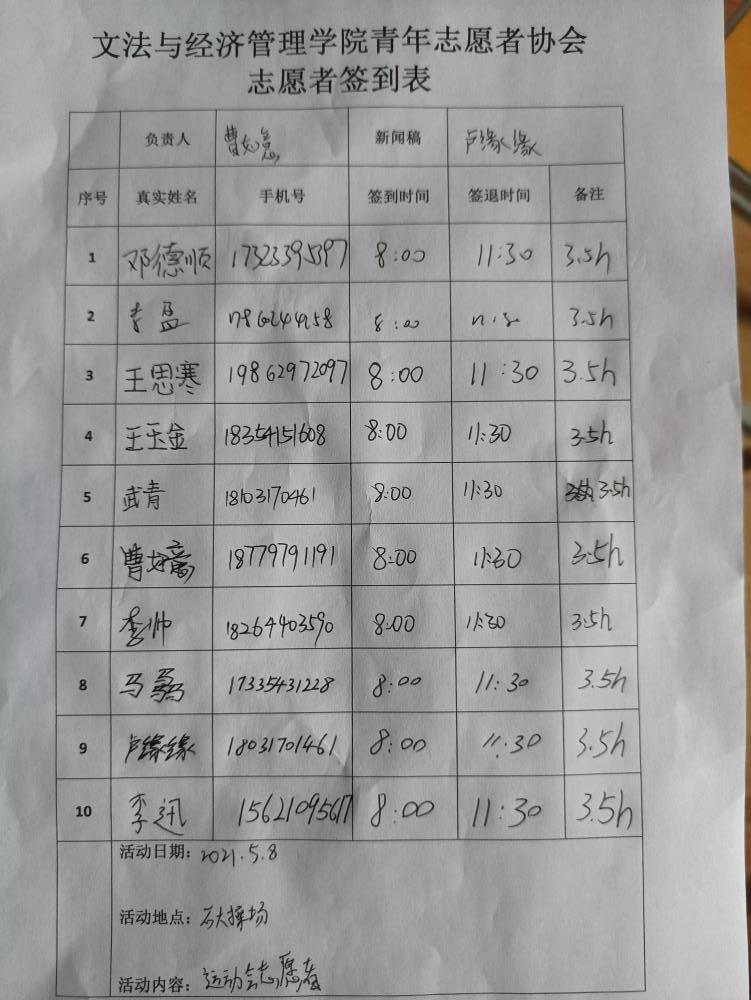 文法与经济管理学院青年志愿者协会
志愿者签到表
负责人 曹如意 新闻稿 卢缘缘
序号 真实姓名 手机号 签到时间 签退时间 备注
1 邓德顺 17323395397 8:00 11:30 3.5h
2 李盈 8:00 3.5h
3 王思寒 19862972097 8:00 11:30 3.5h
4 王玉金 18354151608 8:00 11:30 3.5h
5 武青 18103170461 8:00 11:30 3.5h
6 曹如意 18779791191 8:00 11:30 3.5h
7 李帅 18264403590 8:00 11:30 3.5h
8 马骉 17335431228 8:00 11:30 3.5h
9 卢缘缘 18031701461 8:00 11:30 3.5h
10 李迅 15621095617 8:00 11:30 3.5h
活动日期：2021.5.8
活动地点：石大操场
活动内容：运动会志愿者